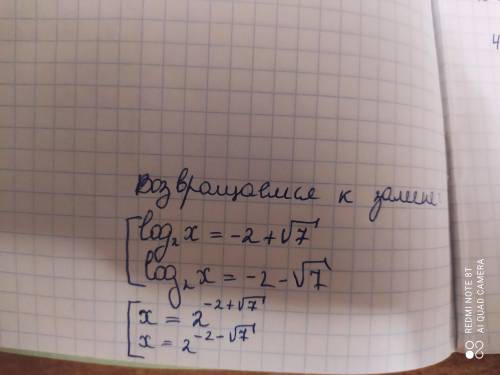 Возвращаемся к замен
log₂x = -2+√7
log₂x = -2-√7
x = 2^{-2+√7}
x = 2^{-2-√7}
REDMI NOTE 8T
AI QUAD CAMERA